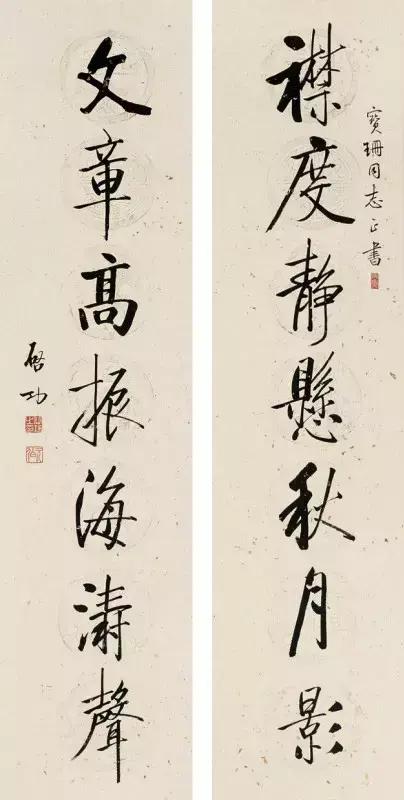 寶珊同志正書
襟度靜懸秋月影
文章高振海濤聲
啓功